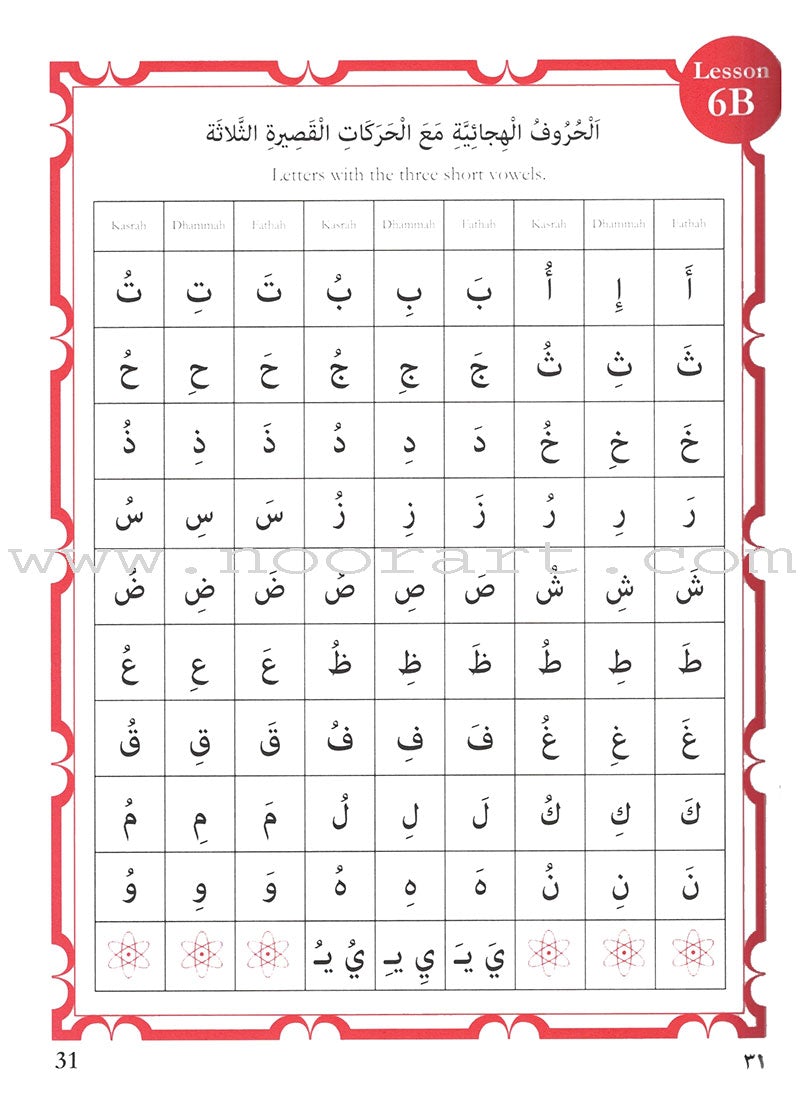 Lesson
6B
اَلْحُرُوفُ الْهِجائِيَّةِ مَعَ الْحَرَكَاتِ الْقَصِيرةِ الثَّلاثَة
Letters with the three short vowels.
Kasrah Dhammah Fathah Kasrah Dhammah Fathah Kasrah Dhammah Fathah
أَ إِ أُ بَ بِ بُ تَ تِ تُ
ثَ ثِ ثُ جَ جِ جُ حَ حِ حُ
خَ خِ خُ دَ دِ دُ ذَ ذِ ذُ
رَ رِ رُ زَ زِ زُ سَ سِ سُ
www.noorart.com
شَ شِ شُ صَ صِ صُ ضَ ضِ ضُ
طَ طِ طُ ظَ ظِ ظُ عَ عِ عُ
غَ غِ غُ فَ فِ فُ قَ قِ قُ
كَ كِ كُ لَ لِ لُ مَ مِ مُ
نَ نِ نُ هَ هِ هُ وَ وِ وُ
يَ يـَ يِ يـِ يُ يـُ
31
٣١